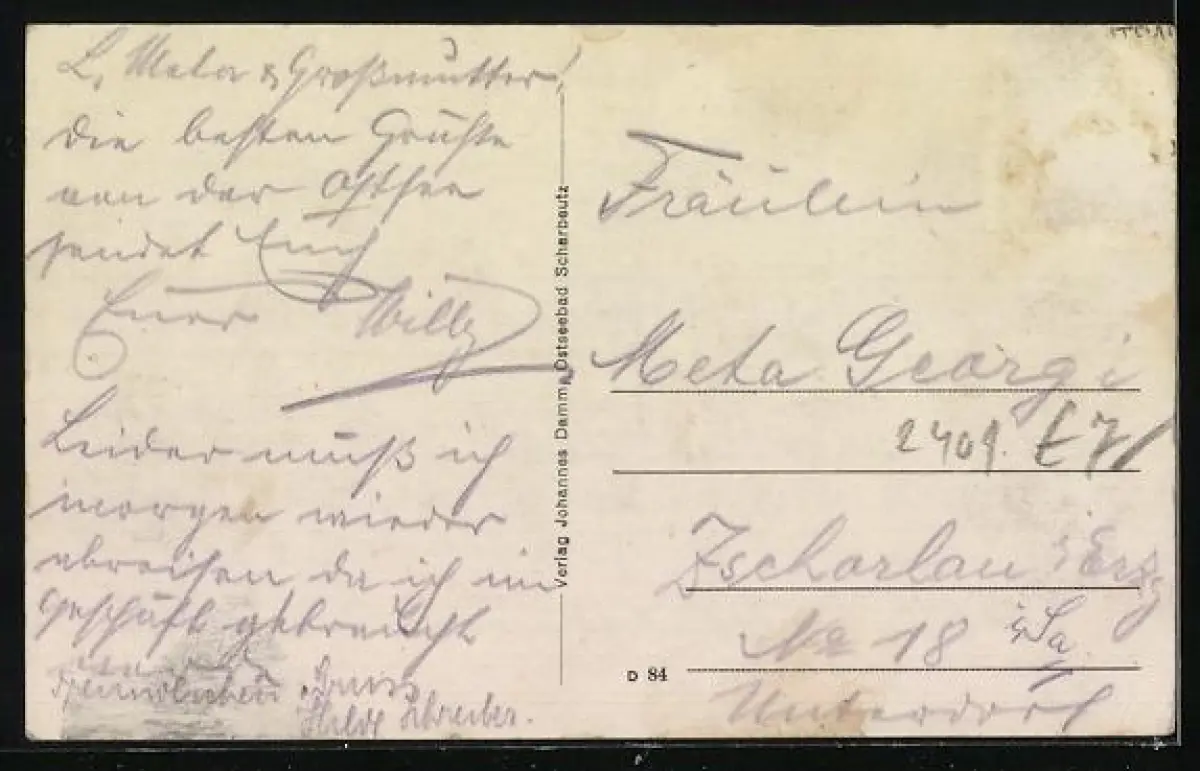 L. Meta & Großmutter!
Die besten Grüße
von der Ostsee
sendet Euch
Euer Willy
Leider muß ich
morgen wieder
abreisen da ich im
Geschäft gebraucht
werde
Freundlichen Gruss
Hilde Schreiber.
Verlag Johannes Damm, Ostseebad Scharbeutz
Fräulein
Meta Georgi
2409.
Zscharlau i. Erzg
No 18 i. Sa
Unterdorf
D 84